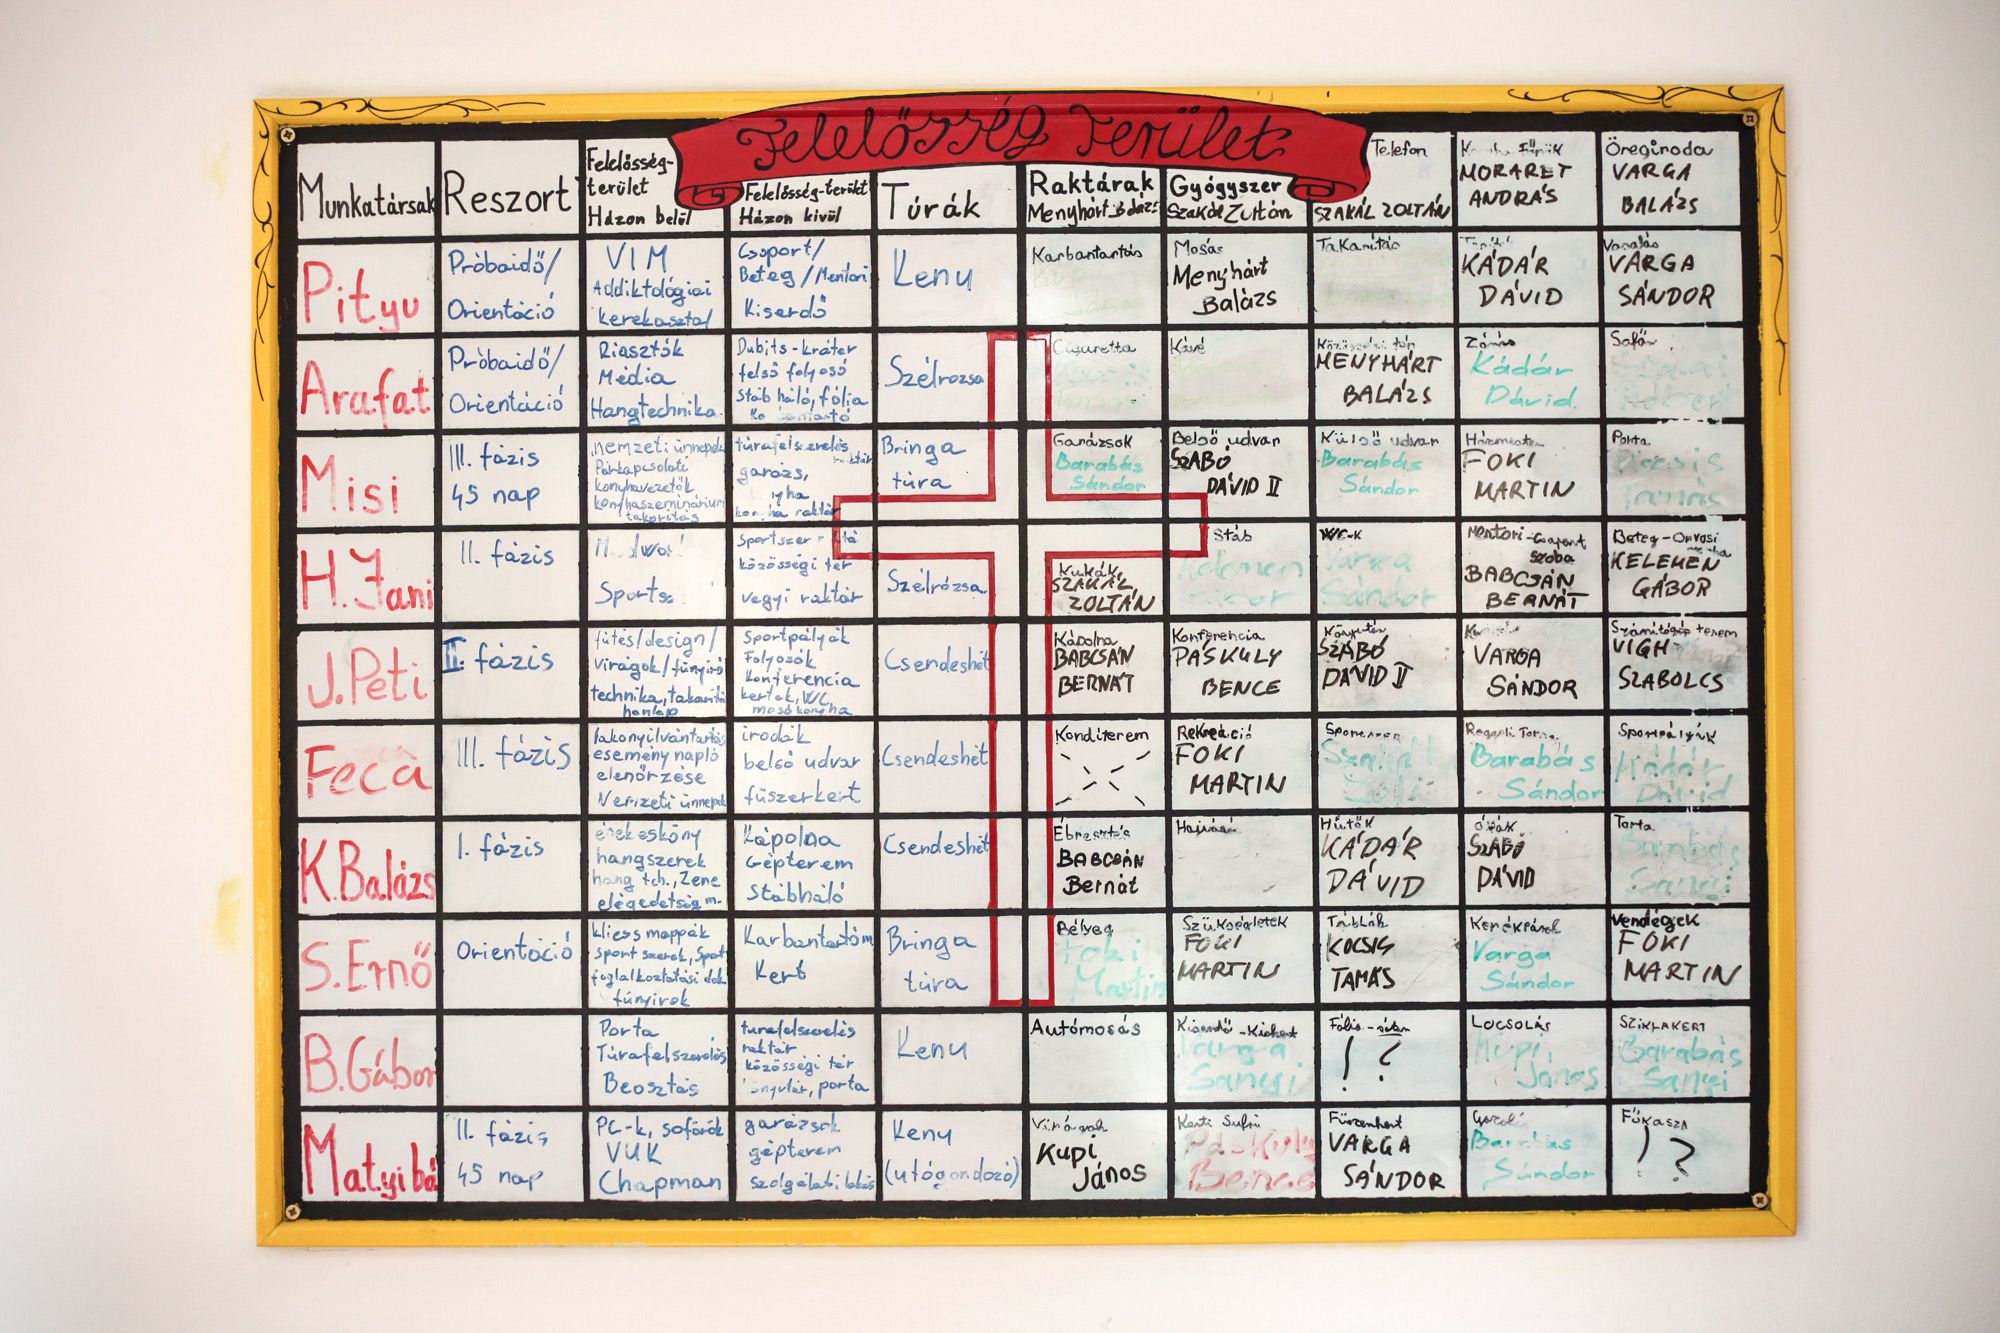 Felelősség Terület
Munkatársak
Reszort
Felelősség-
terület
Házon belül
Felelősség-terület
Házon kívül
Túrák
Raktárak
Menyhárt Balázs
Gyógyszer
Szakál Zoltán
Telefon
SZAKÁL ZOLTÁN
MORARET
ANDRÁS
Öregiroda
VARGA
BALÁZS
Pityu
Próbaidő/
Orientáció
VIM
Addiktológiai
kerekasztal
Csoport/
Beteg/Mentori
Kiserdő
Kenu
Karbantartás
Mosás
Menyhárt
Balázs
Takarítás
KÁDÁR
DÁVID
Vasalás
VARGA
SÁNDOR
Arafat
Próbaidő/
Orientáció
Riasztók
Média
Hangtechnika
Dubits-kráter
felső folyosó
Stáb háló, fólia
Szélrózsa
Cigaretta
Kávé
MENYHÁRT
BALÁZS
Zárás
Kádár
Dávid
Sofőr
Misi
III. fázis
45 nap
nemzeti ünnepek
Párkapcsolati
konyhavezetők
konyhaszeminárium
takarítás
túrafelszerelés
raktár
garázs,
konyha raktár
Bringa
túra
Garázsok
Barabás
Sándor
Belső udvar
SZABÓ
DÁVID II
Külső udvar
Barabás
Sándor
Házmester
FOKI
MARTIN
Porta
Kocsis
Tamás
H. Jani
II. fázis
Sports
közösségi tér
vegyi raktár
Szélrózsa
Kukák
SZAKÁL
ZOLTÁN
Stáb
Kelemen
Gábor
WC-k
Varga
Sándor
Mentori-Csoport
szoba
BABCSÁN
BERNÁT
Beteg-Orvosi
KELEMEN
GÁBOR
J. Peti
II. fázis
fűtés/design/
virágok/fűnyíró
technika, takarítás
honlap
Sportpályák
Folyosók
Konferencia
kertek, WC,
mosókonyha
Csendeshét
Kápolna
BABCSÁN
BERNÁT
Konferencia
PASKULY
BENCE
Könyvtár
SZABÓ
DÁVID II
VARGA
SÁNDOR
Számítógép terem
VIGH
SZABOLCS
Feca
III. fázis
lakónyilvántartás
esemény napló
elenőrzése
Nemzeti ünnepek
irodák
belső udvar
fűszerkert
Csendeshét
Konditerem
Rekreáció
FOKI
MARTIN
Sportszer
Reggeli Torna
Barabás
Sándor
Sportpályák
Kádár
Dávid
K. Balázs
I. fázis
érekesköny
hangszerek
hang tch., Zene
elégedetség m.
Kápolna
Gépterem
Stábháló
Csendeshét
Ébresztés
BABCSÁN
Bernát
Hajvágó
Hűtők
KÁDÁR
DÁVID
Órák
SZABÓ
DÁVID
Torta
Barabás
Sanyi
S. Ernő
Orientáció
kliess mappák
sport szerek, Sport
foglalkoztatási dok
fűnyírok
Karbantartóm
Kert
Bringa
túra
Bélyeg
Foki
Martin
Szükségletek
FOKI
MARTIN
Táblák
KOCSIS
TAMÁS
Kerékpárok
Varga
Sándor
Vendégek
FOKI
MARTIN
B. Gábor
Porta
Túrafelszerelés
Beosztás
turafelszerelés
raktár
közösségi tér
könyvtár, porta
Kenu
Autómosás
Varga
Sanyi
! ?
LOCSOLÁS
Kupi
János
SZIKLAKERT
Barabás
Sanyi
Matyi bá
II. fázis
45 nap
PC-k, sofőrök
VUK
Chapman
garázsok
gépterem
szolgálati lakás
Kenu
(utógondozó)
Virágok
Kupi
János
Paskuly
Bence
Fűszerkert
VARGA
SÁNDOR
Barabás
Sándor
Fűkasza
! ?